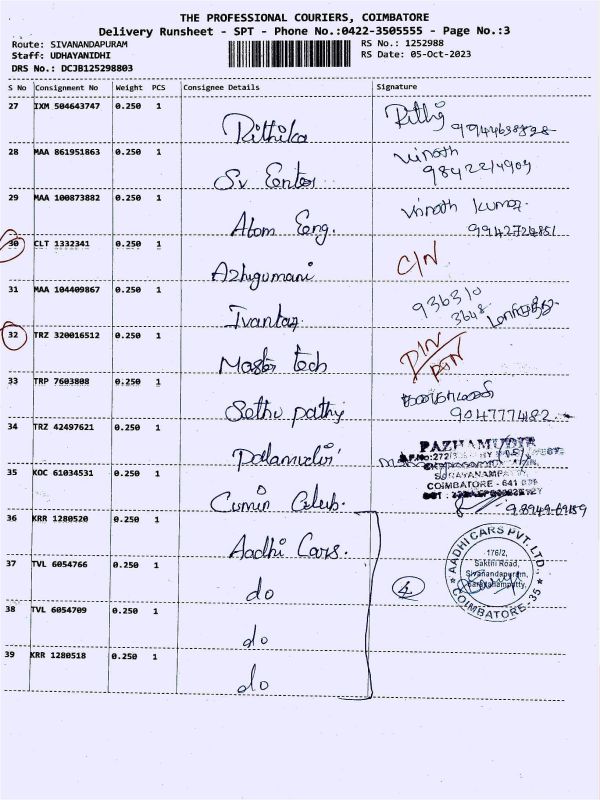 THE PROFESSIONAL COURIERS, COIMBATORE
Delivery Runsheet - SPT - Phone No.:0422-3505555 - Page No.:3
Route: SIVANANDAPURAM RS No.: 1252988
Staff: UDHAYANIDHI RS Date: 05-Oct-2023
DRS No.: DCJB125298803
S No Consignment No Weight PCS Consignee Details Signature
27 IXM 504643747 0.250 1
Rithika Rithi
28 MAA 861951863 0.250 1 Vinoth
Sv Enter 9842214909
29 MAA 100873882 0.250 1 Vinoth Kumar
Atom Eng.
30 CLT 1332341 0.250 1 C/N
Azhugumani
31 MAA 104409867 0.250 1 936310
Ivantaz 3648
32 TRZ 320016512 0.250 1 DIN
Master tech
33 TRP 7603808 0.250 1
Sethu pathy 9047774182
34 TRZ 42497621 0.250 1
PAZHAMUDIR
35 KOC 61034531 0.250 1
COIMBATORE - 641 035
Cumin Club.
36 KRR 1280520 0.250 1
Aadhi Cars.
37 TVL 6054766 0.250 1
do
38 TVL 6054709 0.250 1
do
39 KRR 1280518 0.250 1
do
4
AADHI CARS PVT. LTD.,
176/2,
Sakthi Road,
Sivanandapuram,
Saravanampatty,
COIMBATORE - 35